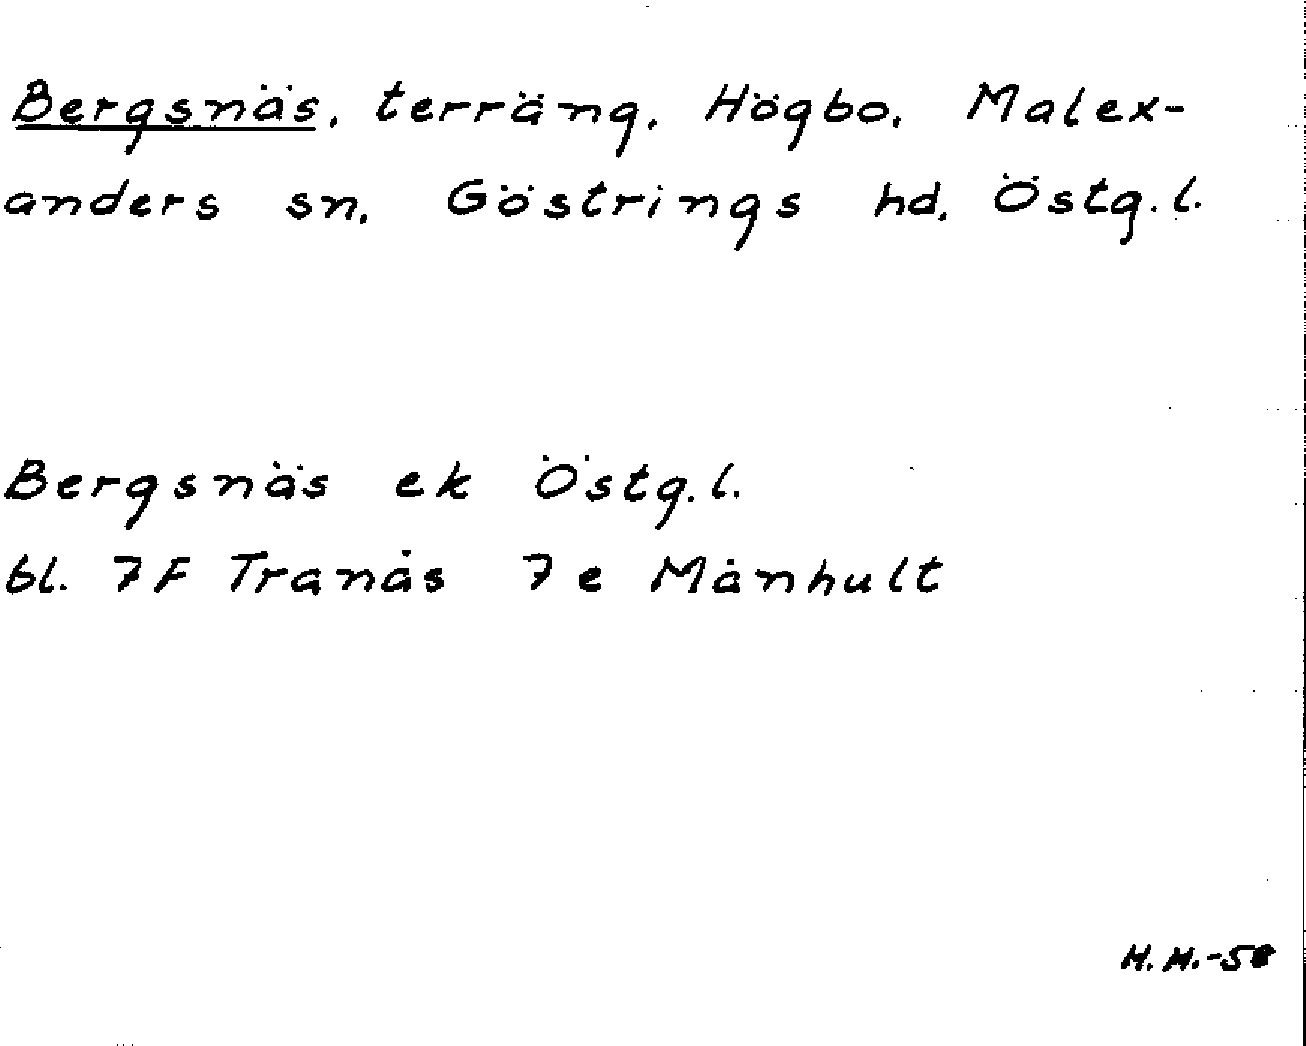 Bergsnäs, terräng, Högbo, Malex-
anders sn, Göstrings hd, Östg. l.
Bergsnäs ek Östg. l.
bl. 7F Tranås 7e Månhult
H. M. -58